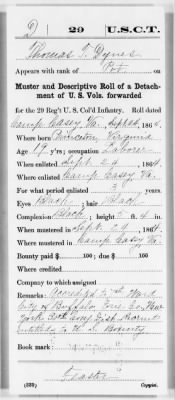 D | 29 | U.S.C.T.
Thomas T. Dynes
Appears with rank of Pvt. on
Muster and Descriptive Roll of a Detach-
ment of U. S. Vols. forwarded
for the 29 Reg't U. S. Col'd Infantry. Roll dated
Camp Casey Va., Sept 30, 1864.
Where born Princeton Virginia
Age 19 y'rs; occupation Laborer
When enlisted Sept. 24, 1864.
Where enlisted Camp Casey Va.
For what period enlisted 3 years.
Eyes Black; hair Black
Complexion Black; height 5 ft. 4 in.
When mustered in Sept. 29, 1864.
Where mustered in Camp Casey Va.
Bounty paid $ 100; due $ 100
Where credited
Company to which assigned
Remarks: Accredited to Ward
City of Buffalo, Erie Co., New
York 30th Cong. Dist. Recruit
entitled to U. S. Bounty
Book mark:
(339) Copyist.